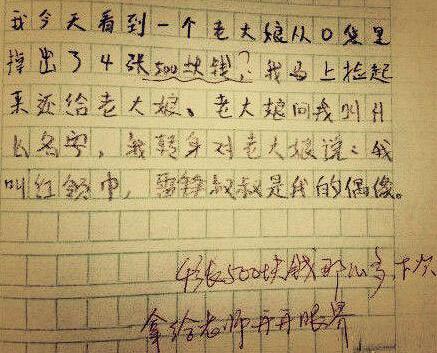 我今天看到一个老大娘从口袋里
掉出了4张500块钱,我马上捡起
来还给老大娘、老大娘问我叫什
么名字,我转身对老大娘说:我
叫红领巾,雷锋叔叔是我的偶像。
4张500块钱那么多,下次
拿给老师开开眼界